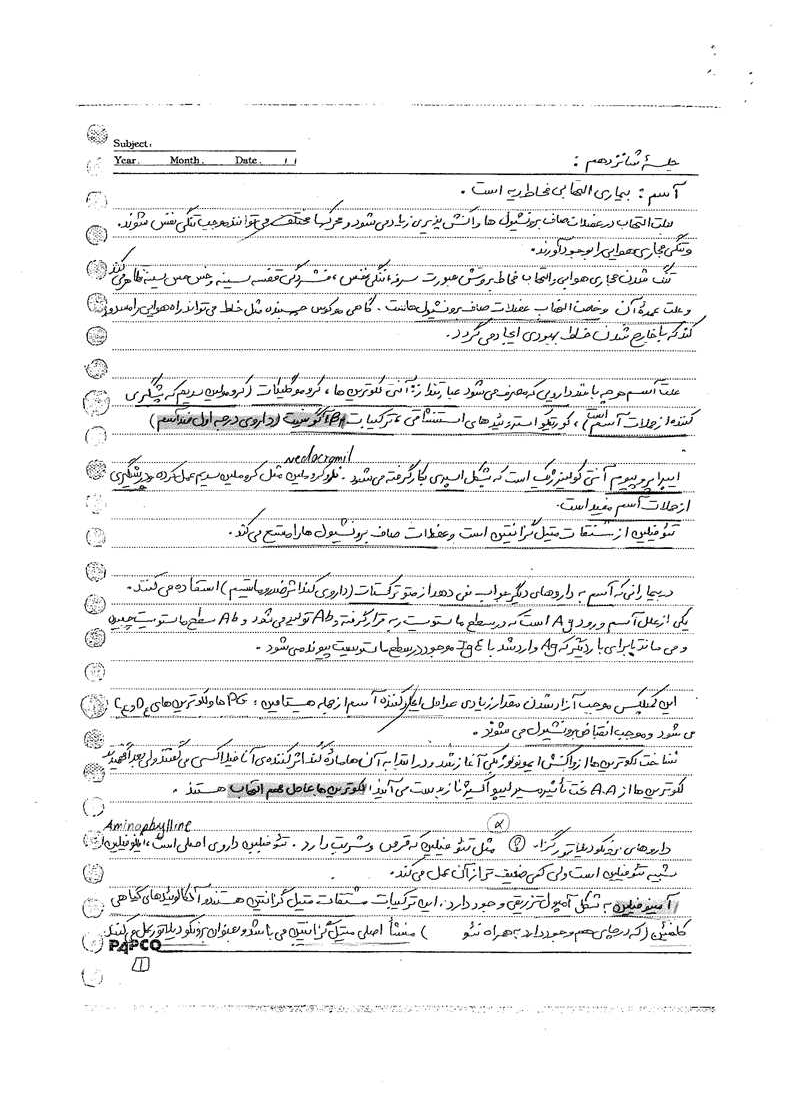 Subject:
Year. Month. Date. ١١
جلسهٔ شانزدهم :
آسم : بیماری التهابی مخاط ریه است .
بعلت التهاب در عضلات صاف برونشیول ها واکنش پذیری زیاد می شود و محرکها مختلف می توانند موجب تنگی نفس شوند.
و تنگی مجاری هوایی را بوجود آورند.
تنگ شدن مجاری هوایی و التهاب مخاط بروش بصورت سرفه، تنگی نفس ، فشردگی قفسه سینه و خس خس سینه ظاهر می کند
و علت عمدهٔ آن التهاب عضلات صاف برونشیول هاست . گاهی موکوس چسبنده مثل خلط می تواند راه هوایی را مسدود
کند که با خارج شدن خلط بهبودی ایجاد می گردد .
علت آسم هر چه باشد دارویی که مصرف می شود عبارتند از : آنتی لکوترین ها ، کروموگلیکات (کرومولین سدیم که پیشگیری
کننده از حملات آسم است) ، کورتیکواستروئیدهای استنشاقی ، ترکیبات β₂ آگونیست (داروی درجه اول ضد آسم)
nedocromil
ایپراتروپیوم آنتی کولینرژیک است که بشکل اسپری بکار گرفته می شود . ندوکرومیل مثل کرومولین سدیم عمل کرده و در پیشگیری
از حملات آسم مفید است.
تئوفیلین از مشتقات متیل گزانتین است و عضلات صاف برونشیول ها را متسع می کند .
در بیمارانی که آسم به داروهای دیگر جواب نمی دهد از متوترکسات (داروی کند اثر ضد روماتیسم) استفاده می کنند .
یکی از علل آسم ورود Ag است که در سطح ماستوسیت ریه قرار گرفته و Ab تولید می شود و Ab سطح ماستوسیت چسبیده
و می ماند تا برای بار دیگر که Ag وارد شد با IgE موجود در سطح ماستوسیت پیوند می شود .
این کمپلکس موجب آزاد شدن مقدار زیادی عوامل ایجاد کننده آسم از جمله هیستامین ، PG ها و لکوترین های C₄ و D₄
می شود و موجب انقباض برونشیول می شوند .
شناخت لکوترین ها از واکنش ایمونولوژیکی آغاز شد و در ابتدا به آن ها ماده کند اثر کننده ی آنافیلاکسی می گفتند ولی بعداً فهمیدند
لکوترین ها از A.A تحت تأثیر مسیر لیپواکسیژناز بدست می آیند. لکوترین ها عامل مهم التهاب هستند .
Aminophylline
داروهای برونکودیلاتور گزا... ? مثل تئوفیلین که قرص و شربت دارد . تئوفیلین داروی اصلی است ، آمینوفیلین
شبیه تئوفیلین است ولی کمی ضعیف تر از آن عمل می کند.
آمینوفیلین به شکل آمپول تزریقی وجود دارد . این ترکیبات مشتقات متیل گزانتین هستند و آلکالوئیدهای گیاهی
کافئین (که در چای هم وجود دارد به همراه تئو ) منشأ اصلی متیل گزانتین می باشد و بعنوان برونکودیلاتور عمل می کنند.
PAPCO
1